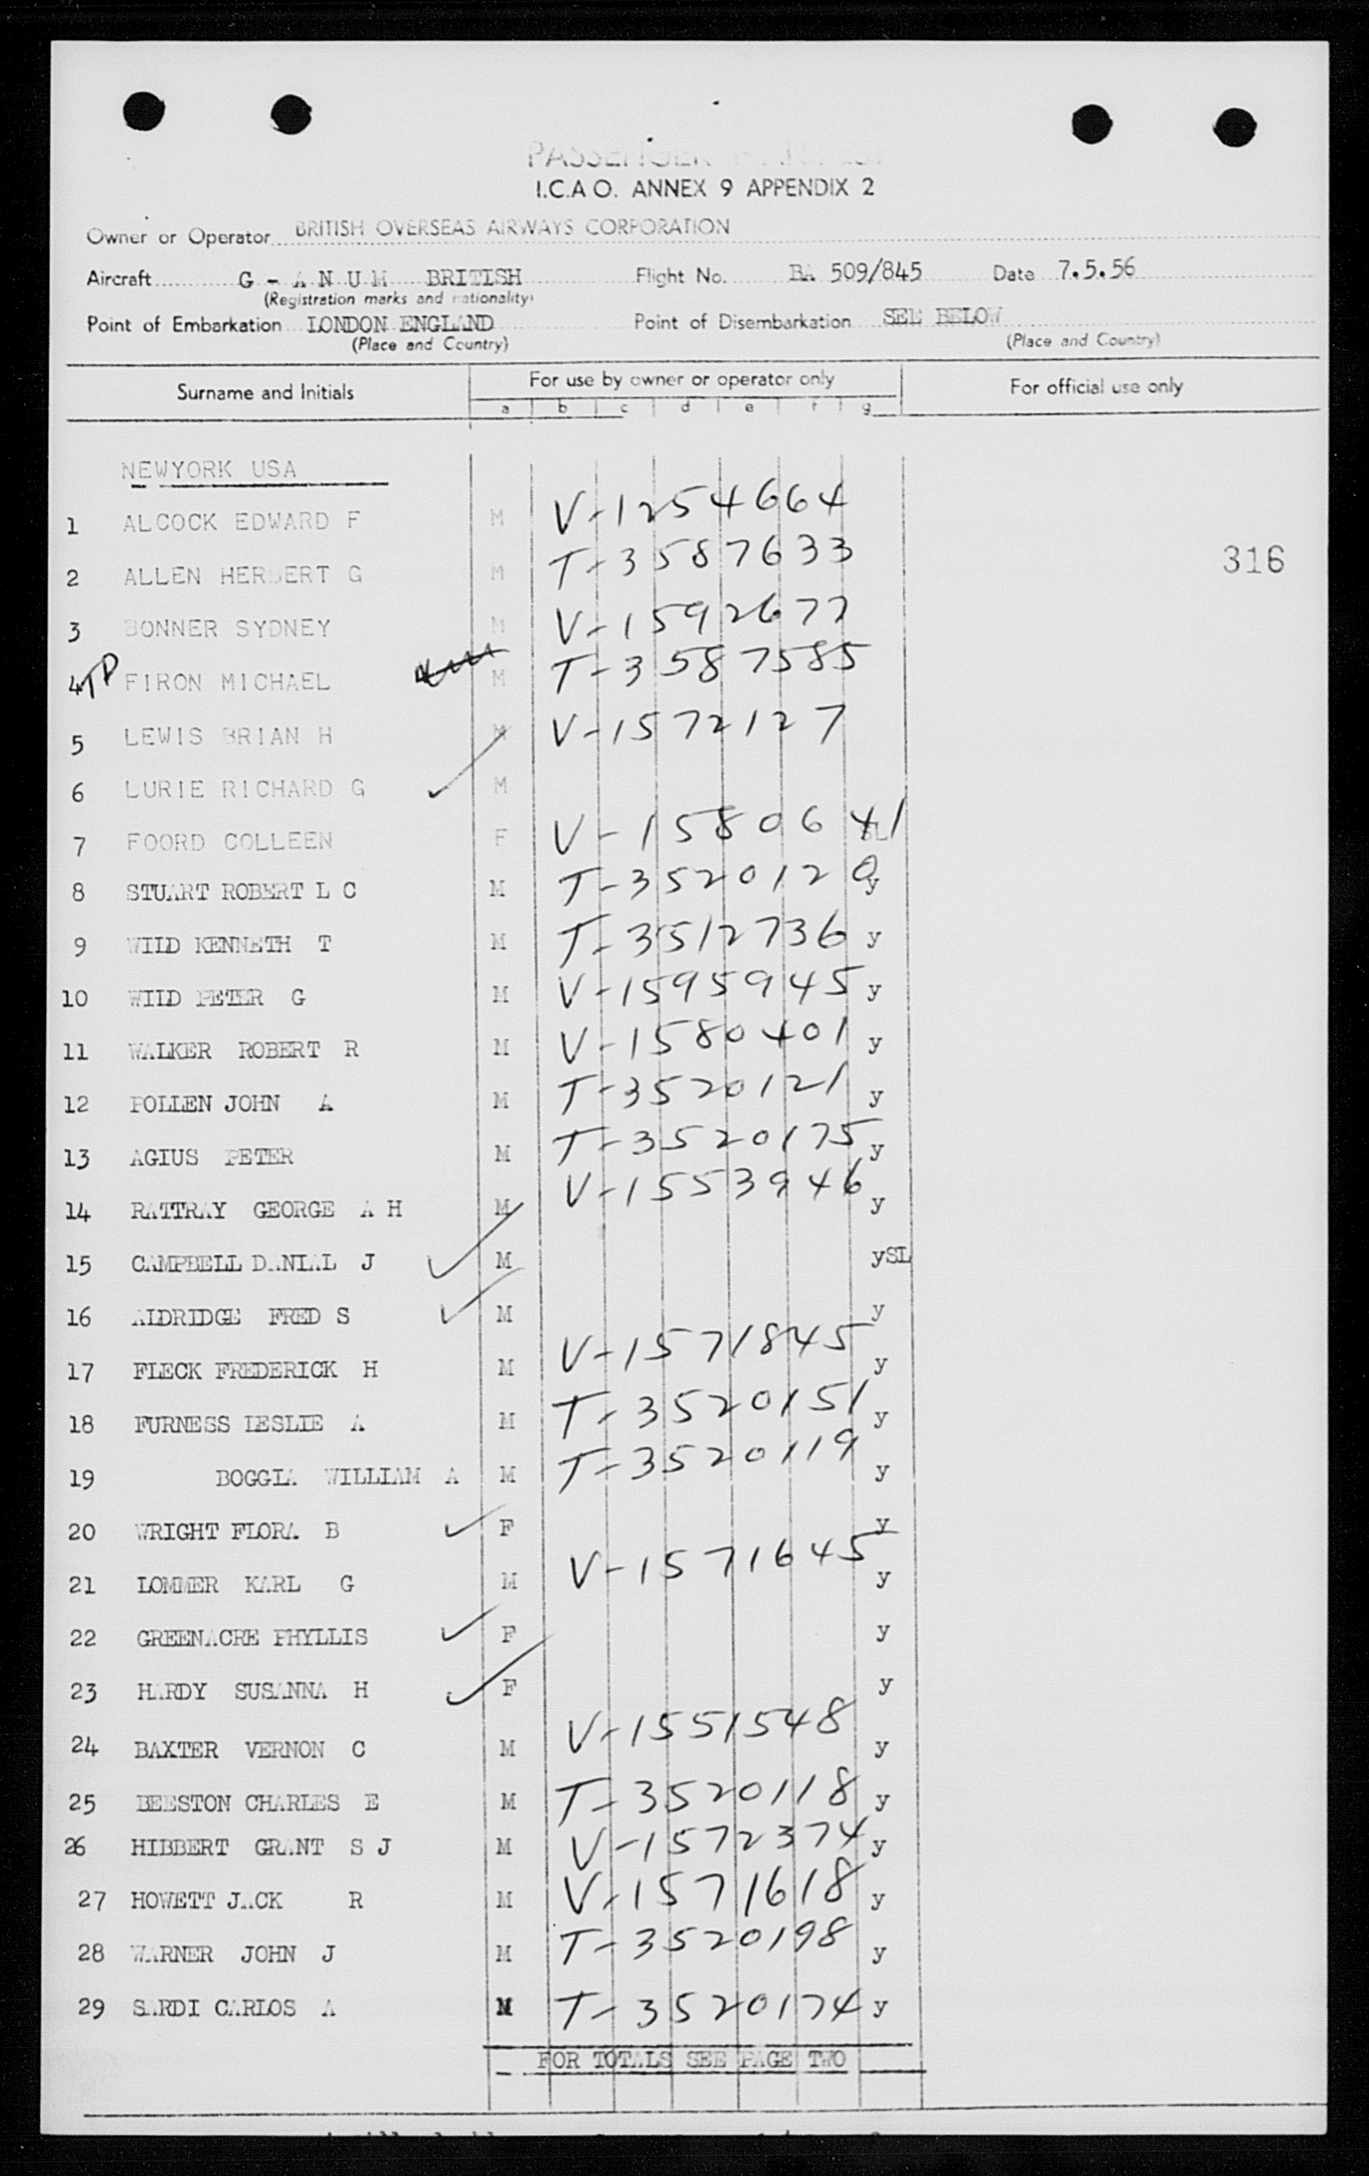 PASSENGER MANIFEST
I.C.A O. ANNEX 9 APPENDIX 2
Owner or Operator BRITISH OVERSEAS AIRWAYS CORPORATION
Aircraft G - A N U M BRITISH Flight No. BA 509/845 Date 7.5.56
(Registration marks and nationality)
Point of Embarkation LONDON ENGLAND Point of Disembarkation SEE BELOW
(Place and Country) (Place and Country)
Surname and Initials For use by owner or operator only For official use only
a b c d e f g
NEWYORK USA
1 ALCOCK EDWARD F M V-1254664
2 ALLEN HERBERT G M T-3587633 316
3 BONNER SYDNEY M V-1592677
4 TP FIRON MICHAEL M T-3587585
5 LEWIS BRIAN H M V-1572127
6 LURIE RICHARD G M
7 FOORD COLLEEN F V-1580641 SL
8 STUART ROBERT L C M T-3520120 y
9 WILD KENNETH T M T-3512736 y
10 WILD PETER G M V-1595945 y
11 WALKER ROBERT R M V-1580401 y
12 POLLEN JOHN A M T-3520121 y
13 AGIUS PETER M T-3520175 y
14 RATTRAY GEORGE A H M V-1553946 y
15 CAMPBELL DANIAL J M ySL
16 ALDRIDGE FRED S M y
17 FLECK FREDERICK H M V-1571845 y
18 FURNESS LESLIE A M T-3520151 y
19 BOGGIA WILLIAM A M T-3520119 y
20 WRIGHT FLORA B F y
21 LOMMER KARL G M V-1571645 y
22 GREENACRE PHYLLIS F y
23 HARDY SUSANNA H F y
24 BAXTER VERNON C M V-1551548 y
25 BEESTON CHARLES E M T-3520118 y
26 HIBBERT GRANT S J M V-1572374 y
27 HOWETT JACK R M V-1571618 y
28 WARNER JOHN J M T-3520198 y
29 SARDI CARLOS A M T-3520174 y
FOR TOTALS SEE PAGE TWO